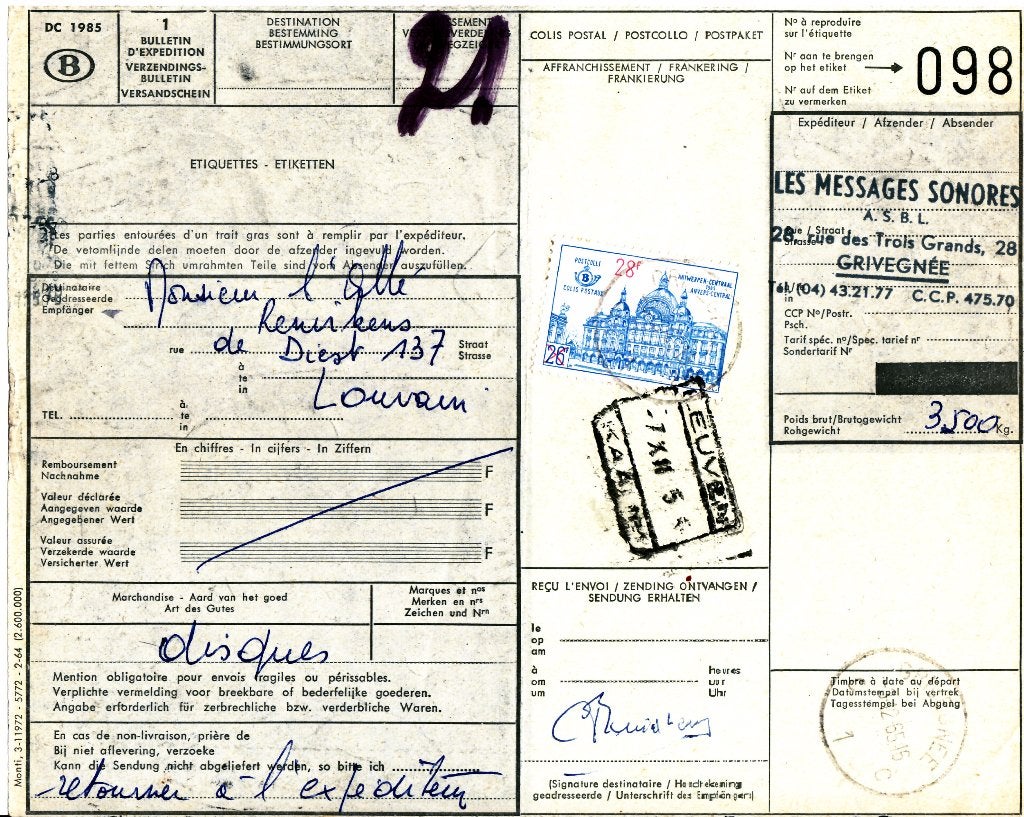 DC 1985
B
1
BULLETIN
D'EXPEDITION
VERZENDINGS-
BULLETIN
VERSANDSCHEIN
DESTINATION
BESTEMMING
BESTIMMUNGSORT
21
COLIS POSTAL / POSTCOLLO / POSTPAKET
AFFRANCHISSEMENT / FRANKERING /
FRANKIERUNG
Nº à reproduire
sur l'étiquette
Nr aan te brengen
op het etiket
Nr auf dem Etiket
zu vermerken
098
ETIQUETTES - ETIKETTEN
Les parties entourées d'un trait gras sont à remplir par l'expéditeur.
De vetomlijnde delen moeten door de afzender ingevuld worden.
Die mit fettem Strich umrahmten Teile sind vom Absender auszufüllen.
Destinataire
Geadresseerde
Empfänger
Monsieur l'
rue de Diest 137 Straat
Strasse
à
te
in
Louvain
TEL.
à
te
in
En chiffres - In cijfers - In Ziffern
Remboursement
Nachnahme
F
Valeur déclarée
Aangegeven waarde
Angegebener Wert
F
Valeur assurée
Verzekerde waarde
Versicherter Wert
F
Marchandise - Aard van het goed
Art des Gutes
Marques et nos
Merken en nrs
Zeichen und Nrn
disques
Mention obligatoire pour envais fragiles ou périssables.
Verplichte vermelding voor breekbare of bederfelijke goederen.
Angabe erforderlich für zerbrechliche bzw. verderbliche Waren.
En cas de non-livraison, prière de
Bij niet aflevering, verzoeke
Kann die Sendung nicht abgeliefert werden, so bitte ich
retourner à l'expéditeur
Monti, 3-11972 - 5772 - 2-64 (2.600.000)
POSTCOLLO
B
COLIS POSTAUX
28F
ANTWERPEN-CENTRAAL
ANVERS-CENTRAL
26F
LEUVEN
-7 XII 5
REÇU L'ENVOI / ZENDING ONTVANGEN /
SENDUNG ERHALTEN
le
op
am
à
om
um
heures
uur
Uhr
(Signature destinataire / Handtekening
geadresseerde / Unterschrift des Empfängers)
Expéditeur / Afzender / Absender
LES MESSAGES SONORES
A. S. B. L.
28, rue des Trois Grands, 28
GRIVEGNÉE
Tél. (04) 43.21.77 C.C.P. 475.70
CCP Nº/Postr.
Psch.
Tarif spéc. nº/Spec. tarief nr
Sondertarif Nr
Poids brut/Brutogewicht
Rohgewicht
3.500 Kg.
Timbre à date au départ
Datumstempel bij vertrek
Tagesstempel bei Abgang